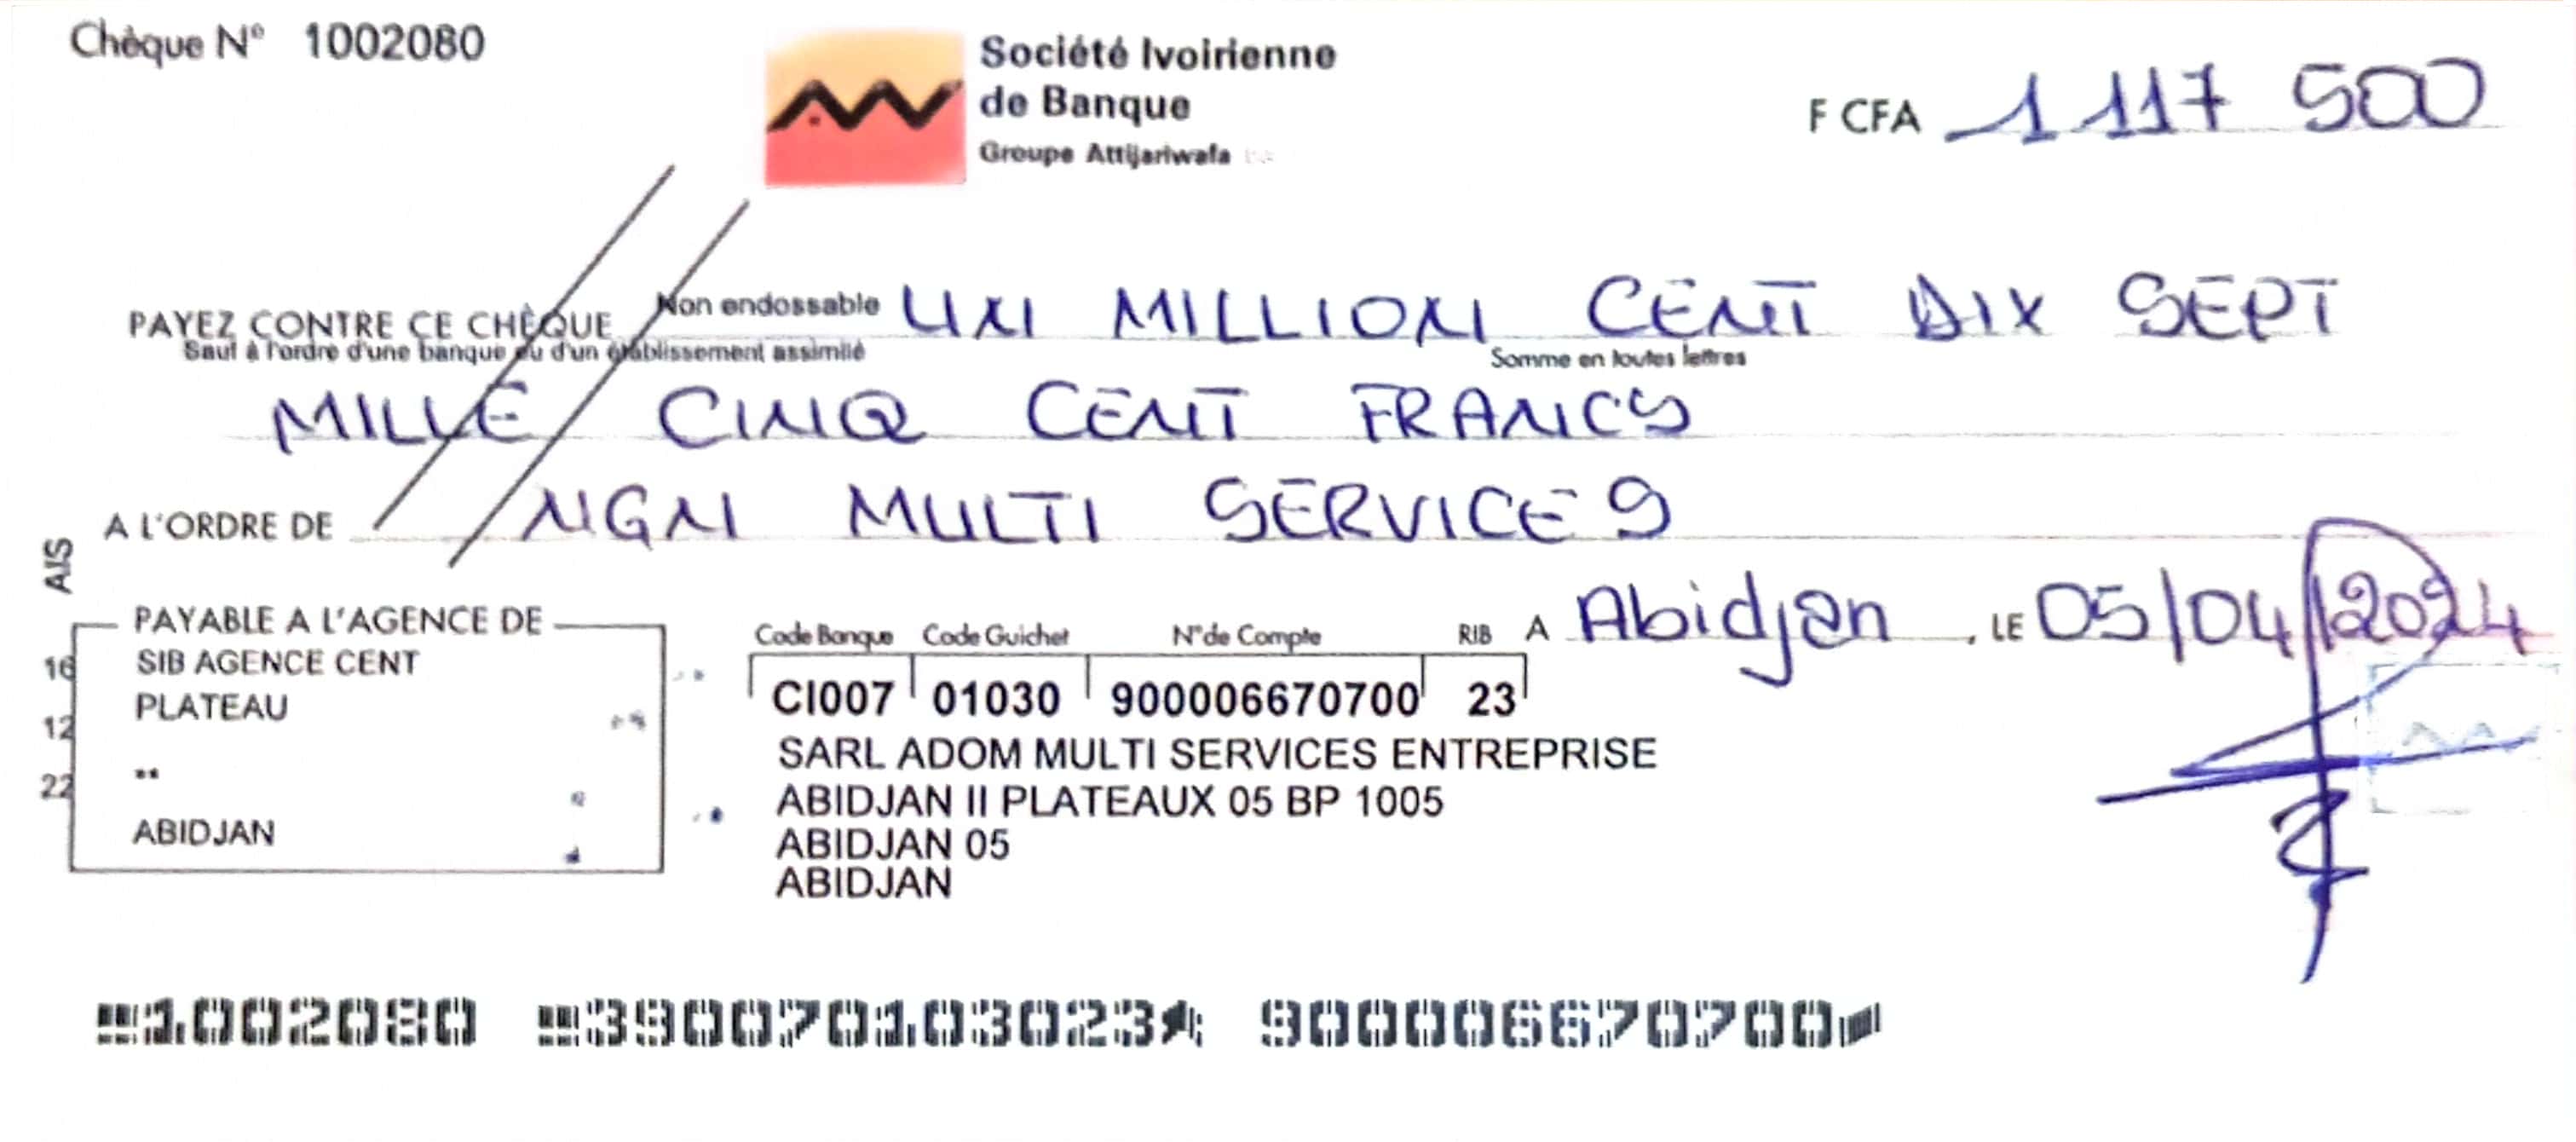 Chèque N° 1002080
Société Ivoirienne
de Banque
Groupe Attijariwafa
F CFA 1 117 500
PAYEZ CONTRE CE CHÈQUE Non endossable UN MILLION CENT DIX SEPT
Sauf à l'ordre d'une banque ou d'un établissement assimilé Somme en toutes lettres
MILLE CINQ CENT FRANCS
A L'ORDRE DE NGN MULTI SERVICES
AIS
PAYABLE A L'AGENCE DE
SIB AGENCE CENT
PLATEAU
**
ABIDJAN
16
12
22
A Abidjan, LE 05/04/2024
Code Banque Code Guichet N° de Compte RIB
CI007 01030 900006670700 23
SARL ADOM MULTI SERVICES ENTREPRISE
ABIDJAN II PLATEAUX 05 BP 1005
ABIDJAN 05
ABIDJAN
1002080 390070103023 900006670700